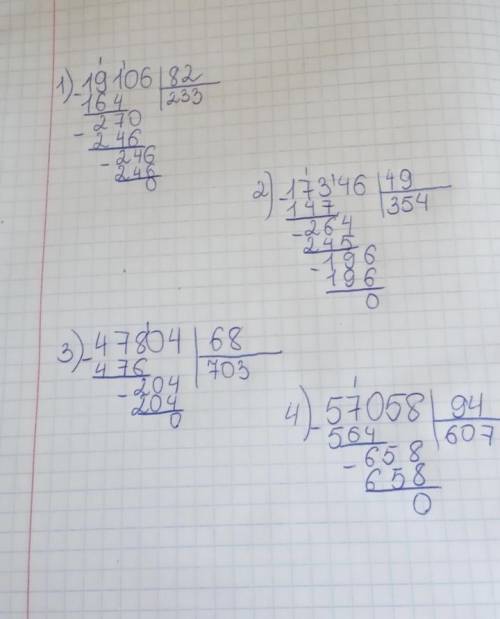 1) -19106 | 82
164 | 233
-270
246
-246
246
0
2) -17346 | 49
147 | 354
-264
245
-196
196
0
3) -47804 | 68
476 | 703
-204
204
0
4) -57058 | 94
564 | 607
-658
658
0